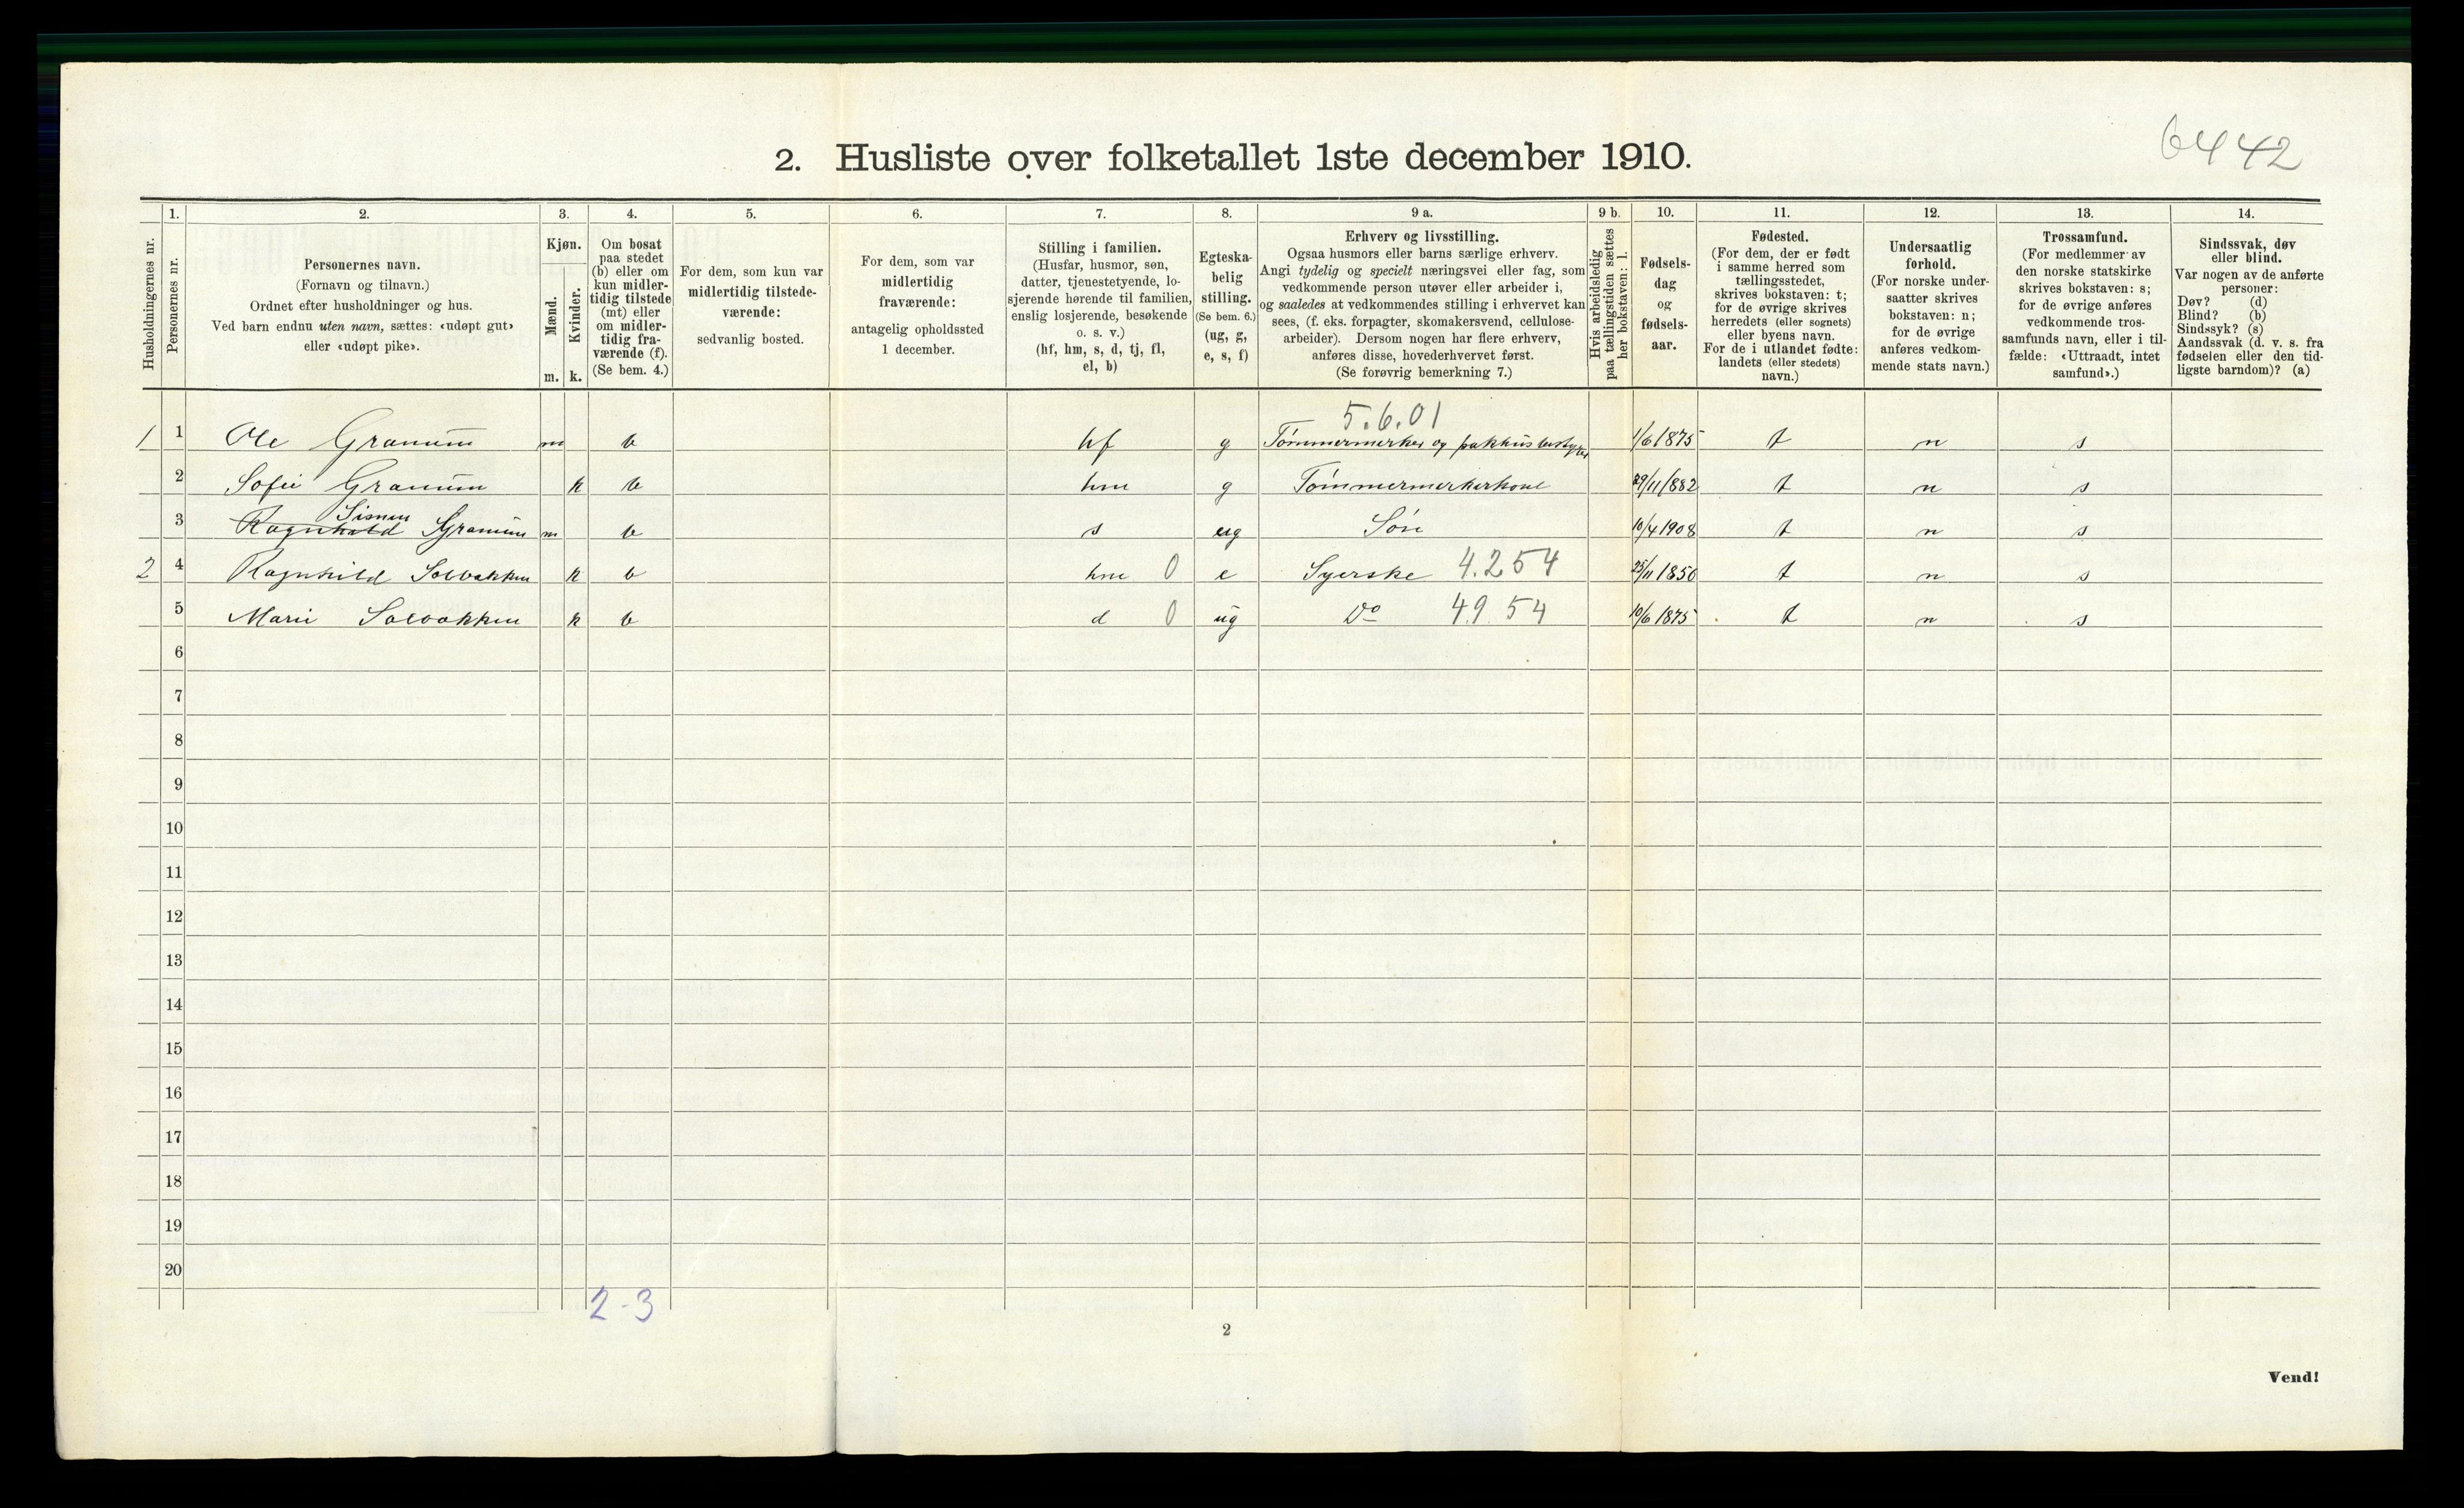 6442
2. Husliste over folketallet 1ste december 1910.
1. 2. 3. 4. 5. 6. 7. 8. 9 a. 9 b. 10. 11. 12. 13. 14.
Husholdningernes nr.
Personernes nr.
Personernes navn.
(Fornavn og tilnavn.)
Ordnet efter husholdninger og hus.
Ved barn endnu uten navn, sættes: «udøpt gut»
eller «udøpt pike».
Kjøn.
Mænd.
Kvinder.
m. k.
Om bosat
paa stedet
(b) eller om
kun midler-
tidig tilstede
(mt) eller
om midler-
tidig fra-
værende (f).
(Se bem. 4.)
For dem, som kun var
midlertidig tilstede-
værende:
sedvanlig bosted.
For dem, som var
midlertidig
fraværende:
antagelig opholdssted
1 december.
Stilling i familien.
(Husfar, husmor, søn,
datter, tjenestetyende, lo-
sjerende hørende til familien,
enslig losjerende, besøkende
o. s. v.)
(hf, hm, s, d, tj, fl,
el, b)
Egteska-
belig
stilling.
(Se bem. 6.)
(ug, g,
e, s, f)
Erhverv og livsstilling.
Ogsaa husmors eller barns særlige erhverv.
Angi tydelig og specielt næringsvei eller fag, som
vedkommende person utøver eller arbeider i,
og saaledes at vedkommendes stilling i erhvervet kan
sees, (f. eks. forpagter, skomakersvend, cellulose-
arbeider). Dersom nogen har flere erhverv,
anføres disse, hovederhvervet først.
(Se forøvrig bemerkning 7.)
Hvis arbeidsledig
paa tællingstiden sættes
her bokstaven: l.
Fødsels-
dag
og
fødsels-
aar.
Fødested.
(For dem, der er født
i samme herred som
tællingsstedet,
skrives bokstaven: t;
for de øvrige skrives
herredets (eller sognets)
eller byens navn.
For de i utlandet fødte:
landets (eller stedets)
navn.)
Undersaatlig
forhold.
(For norske under-
saatter skrives
bokstaven: n;
for de øvrige
anføres vedkom-
mende stats navn.)
Trossamfund.
(For medlemmer av
den norske statskirke
skrives bokstaven: s;
for de øvrige anføres
vedkommende tros-
samfunds navn, eller i til-
fælde: «Uttraadt, intet
samfund».)
Sindssvak, døv
eller blind.
Var nogen av de anførte
personer:
Døv? (d)
Blind? (b)
Sindssyk? (s)
Aandssvak (d. v. s. fra
fødselen eller den tid-
ligste barndom)? (a)
5.6.01
1 1 Ole Granum m b hf g Tømmermerker og pakhusbestyrer 1/6 1875 t n s
2 Sofie Granum k b hm g Tømmermerkerkone 29/11 1882 t n s
Simen
3 Ragnhild Granum m b s ug Søn 10/4 1908 t n s
2 4 Ragnhild Solbakken k b hm 0 e Syerske 4.254 25/11 1850 t n s
5 Marie Solbakken k b d 0 ug Do 49.54 10/6 1875 t n s
6
7
8
9
10
11
12
13
14
15
16
17
18
19
20
2-3
2
Vend!